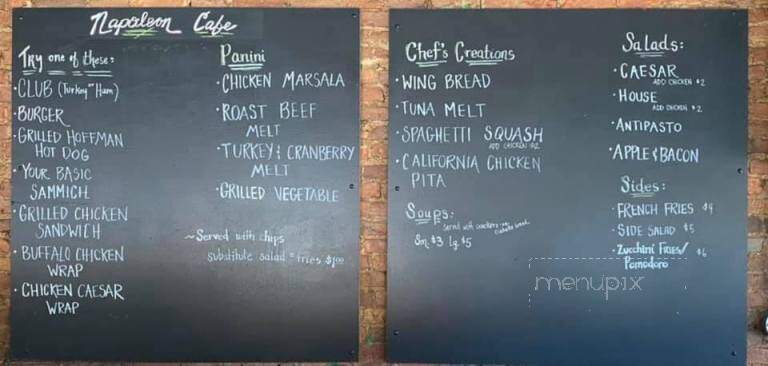 Napoleon Cafe
Try one of these:
· CLUB (Turkey or Ham)
· BURGER
· GRILLED HOFFMAN
HOT DOG
· YOUR BASIC
SAMMICH
· GRILLED CHICKEN
SANDWICH
· BUFFALO CHICKEN
WRAP
· CHICKEN CAESAR
WRAP
Panini
· CHICKEN MARSALA
· ROAST BEEF
MELT
· TURKEY & CRANBERRY
MELT
· GRILLED VEGETABLE
~Served with chips
substitute salad or fries $1.00
Chef's Creations
· WING BREAD
· TUNA MELT
· SPAGHETTI SQUASH
ADD CHICKEN $2
· CALIFORNIA CHICKEN
PITA
Soups:
Served with crackers
Sm $3 lg $5
Salads:
· CAESAR
ADD CHICKEN $2
· HOUSE
ADD CHICKEN $2
· ANTIPASTO
· APPLE & BACON
Sides:
· FRENCH FRIES $4
· SIDE SALAD $5
· Zucchini Fries/ $6
Pomodoro
menupix